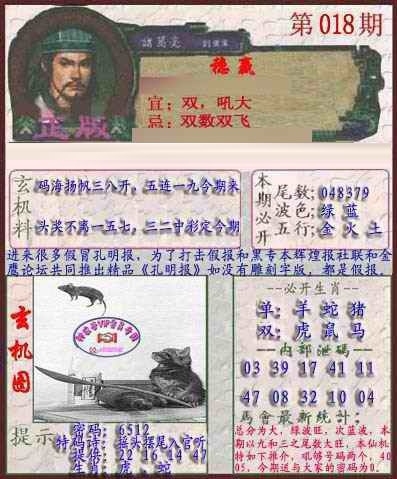 第018期
諸葛亮
稳赢
宜：双，吼大
忌：双数双飞
正版
玄机料
码海扬帆三八开，五连一九今期来
头奖不离一五七，三二中彩定今期
本期必开
尾数：048379
波色：绿 蓝
五行：金 火 土
进来很多假冒孔明报，为了打击假报和黑专本辉煌报社联和金
鹰论坛共同推出精品《孔明报》如没有雕刻字版，都是假报。
玄机图
必开生肖
单：羊 蛇 猪
双：虎 鼠 马
内部泄码
03 39 17 41 11
47 08 32 10 04
馬會最新统计：
总分为大，绿波旺，次蓝波，本
期以九和三之尾数大旺，本仙机
特如下推介，吼够号码两个，40
05，今期送与大家的密码为0。
提示
密码：6512
特码诗：摇头摆尾入官所
提供：22 16 14 47
生肖：虎：蛇